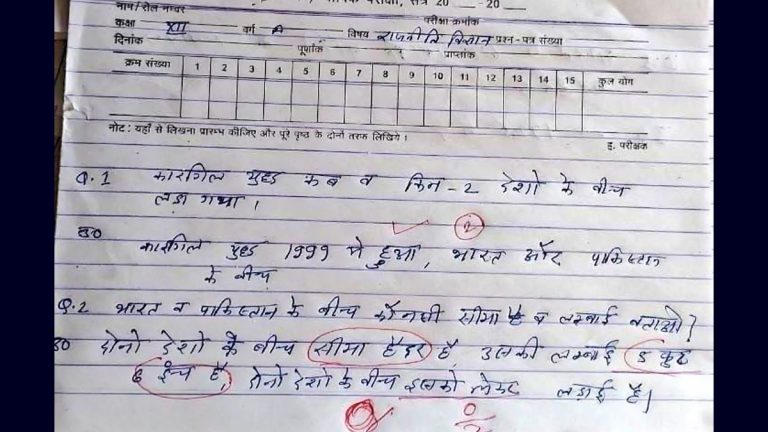 परीक्षा, सत्र 20 20
नाम/रोल नम्बर परीक्षा क्रमांक
कक्षा XII वर्ग A विषय राजनीति विज्ञान प्रश्न-पत्र संख्या
दिनांक पूर्णांक प्राप्तांक
क्रम संख्या 1 2 3 4 5 6 7 8 9 10 11 12 13 14 15 कुल योग
नोट: यहाँ से लिखना प्रारम्भ कीजिए और पूरे पृष्ठ के दोनों तरफ लिखिये।
ह. परीक्षक
Q.1 कारगिल युद्ध कब व किन-2 देशो के बीच
लड़ा गया।
2
उ0 कारगिल युद्ध 1999 मे हुआ, भारत और पाकिस्तान
के बीच
Q.2 भारत व पाकिस्तान के बीच कौनसी सीमा है व लम्बाई बताओ?
उ0 दोनो देशो के बीच सीमा हैदर है, उसकी लम्बाई 5 फुट
6 इंच है, दोनो देशो के बीच इसको लेकर लड़ाई है।
0